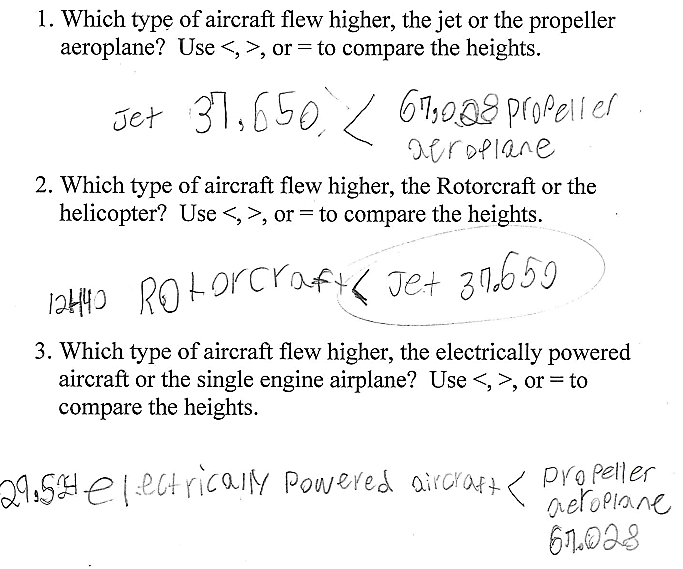 1. Which type of aircraft flew higher, the jet or the propeller
aeroplane? Use <, >, or = to compare the heights.
Jet 37,650 < 67,028 propeller
aeroplane
2. Which type of aircraft flew higher, the Rotorcraft or the
helicopter? Use <, >, or = to compare the heights.
12440 Rotorcraft < Jet 37.650
3. Which type of aircraft flew higher, the electrically powered
aircraft or the single engine airplane? Use <, >, or = to
compare the heights.
electrically Powered aircraft < propeller
aeroplane
67.028